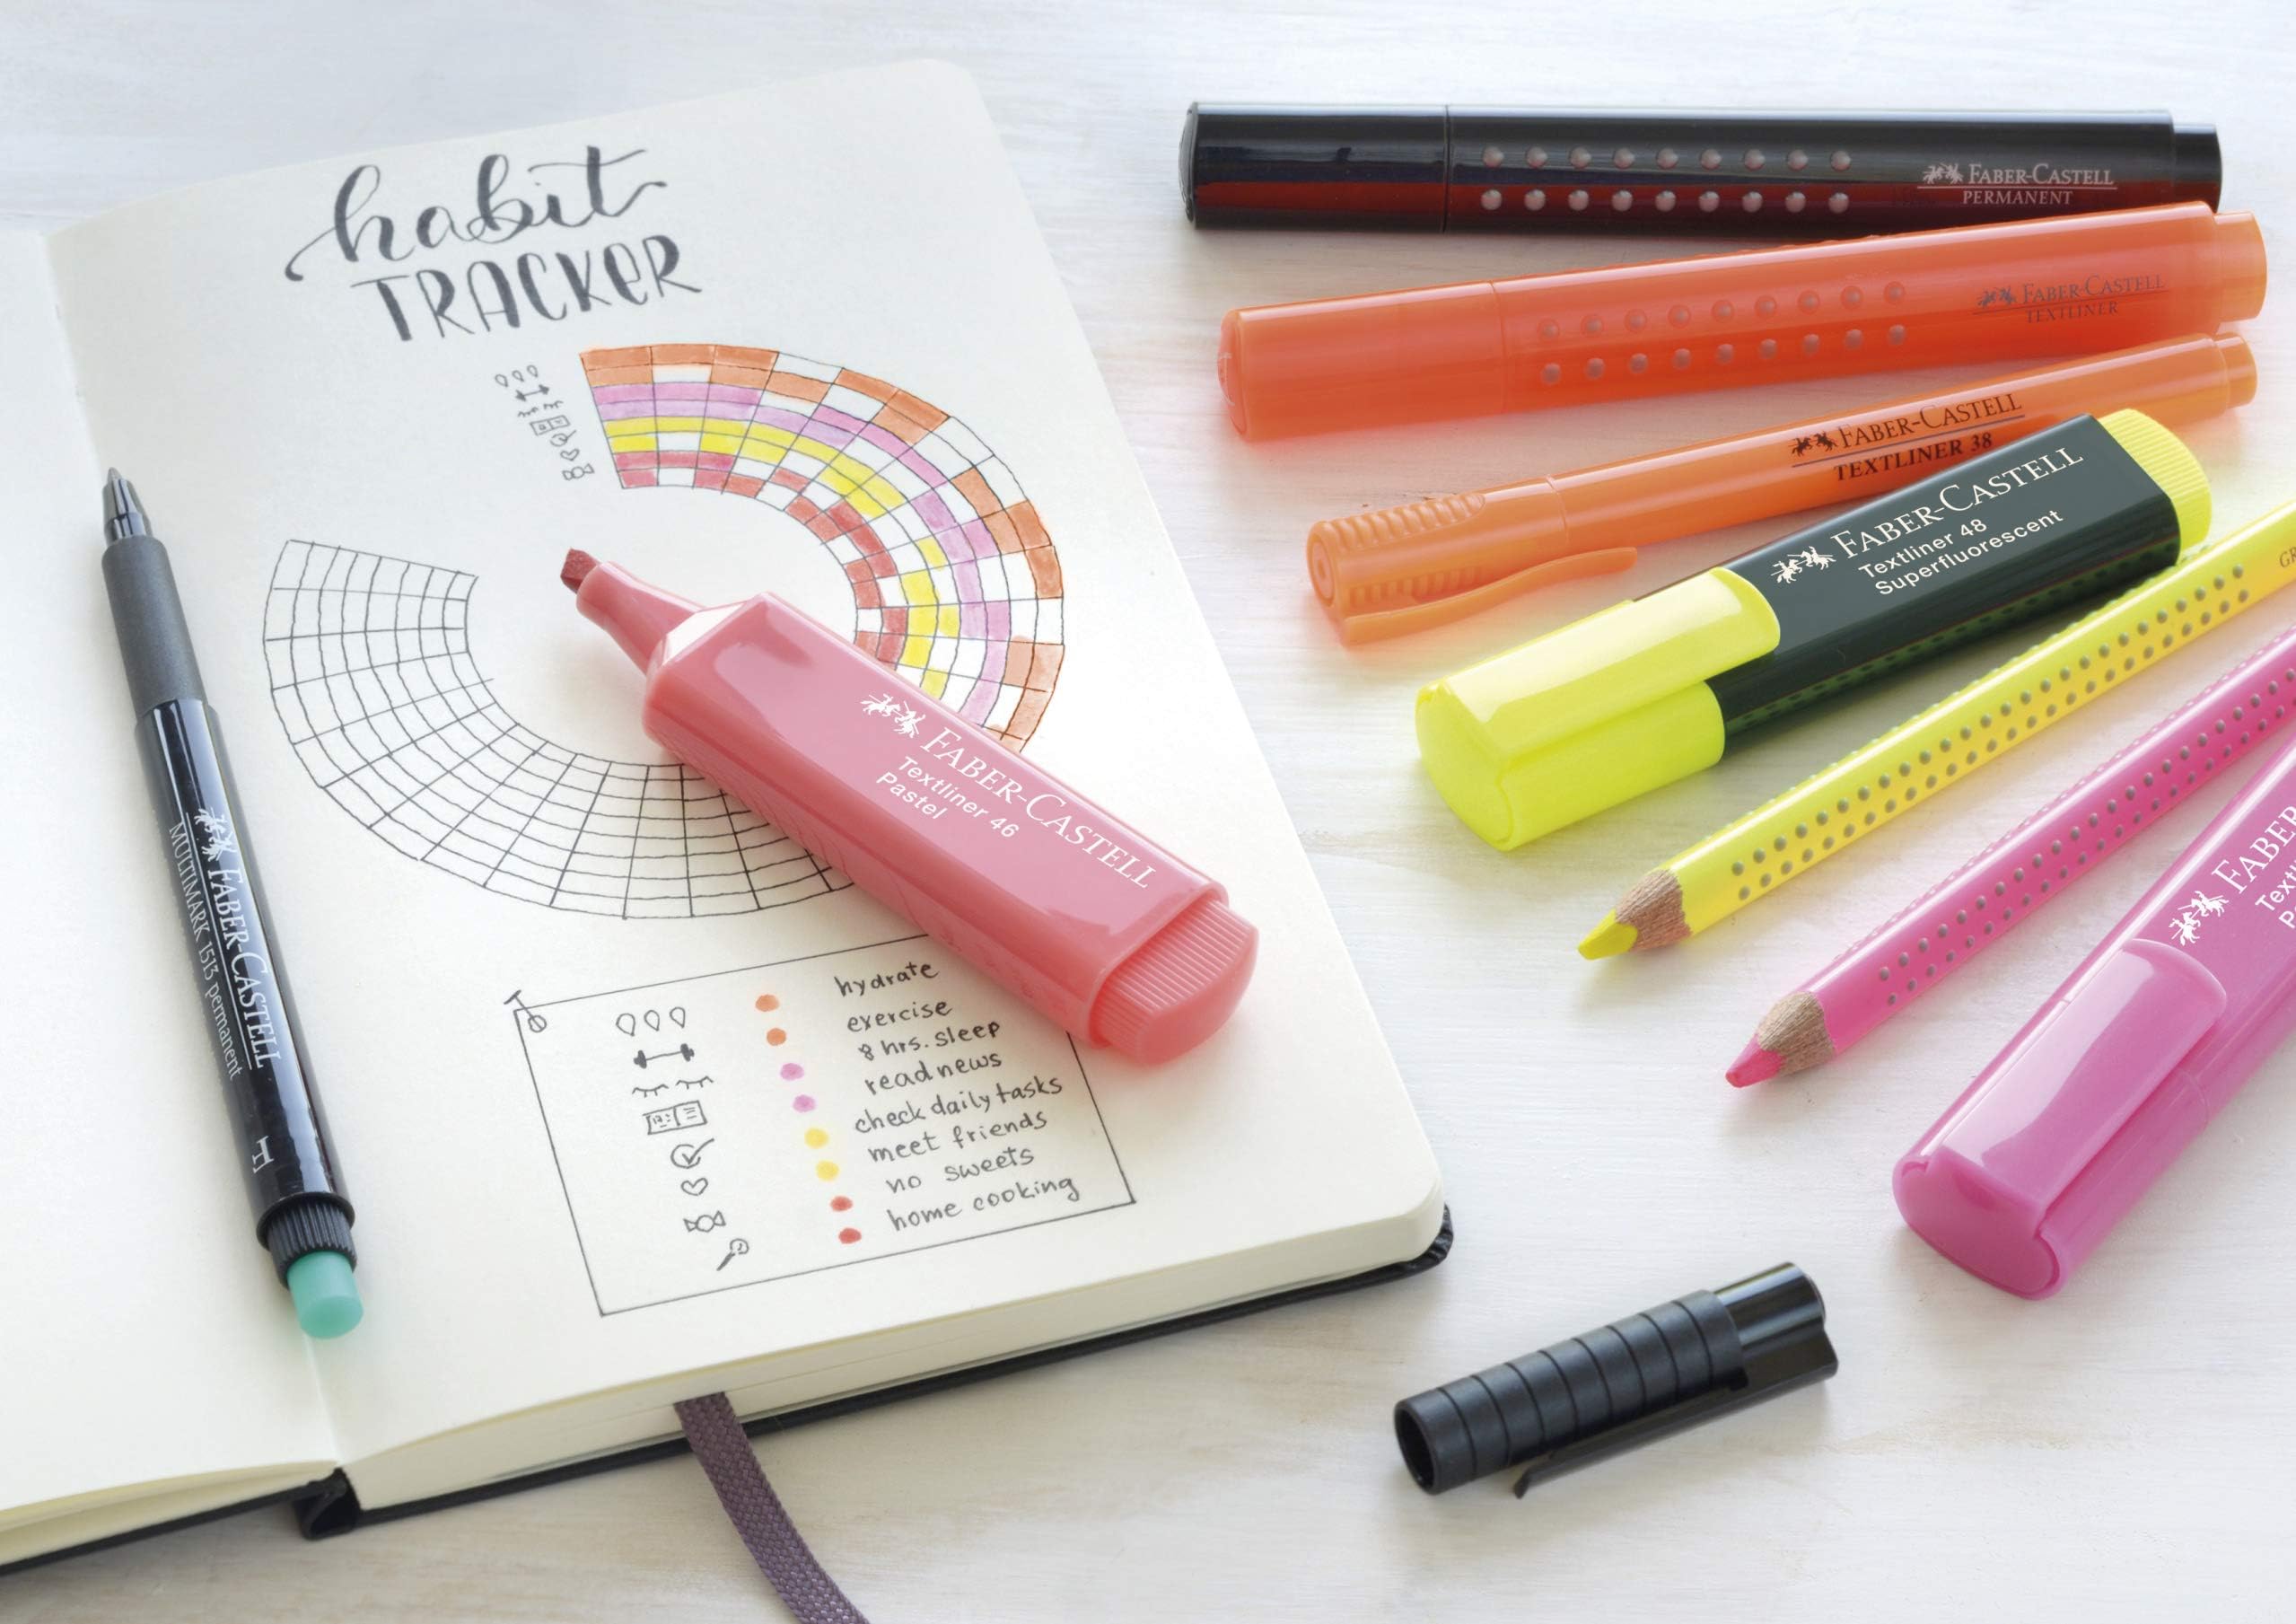 habit
TRACKER
hydrate
exercise
8 hrs. sleep
read news
check daily tasks
meet friends
no sweets
home cooking
FABER-CASTELL
MULTIMARK 1513 permanent
F
FABER-CASTELL
Textliner 46
Pastel
FABER-CASTELL
PERMANENT
FABER-CASTELL
TEXTLINER
FABER-CASTELL
TEXTLINER 38
FABER-CASTELL
Textliner 48
Superfluorescent
GR
FABER
Textl